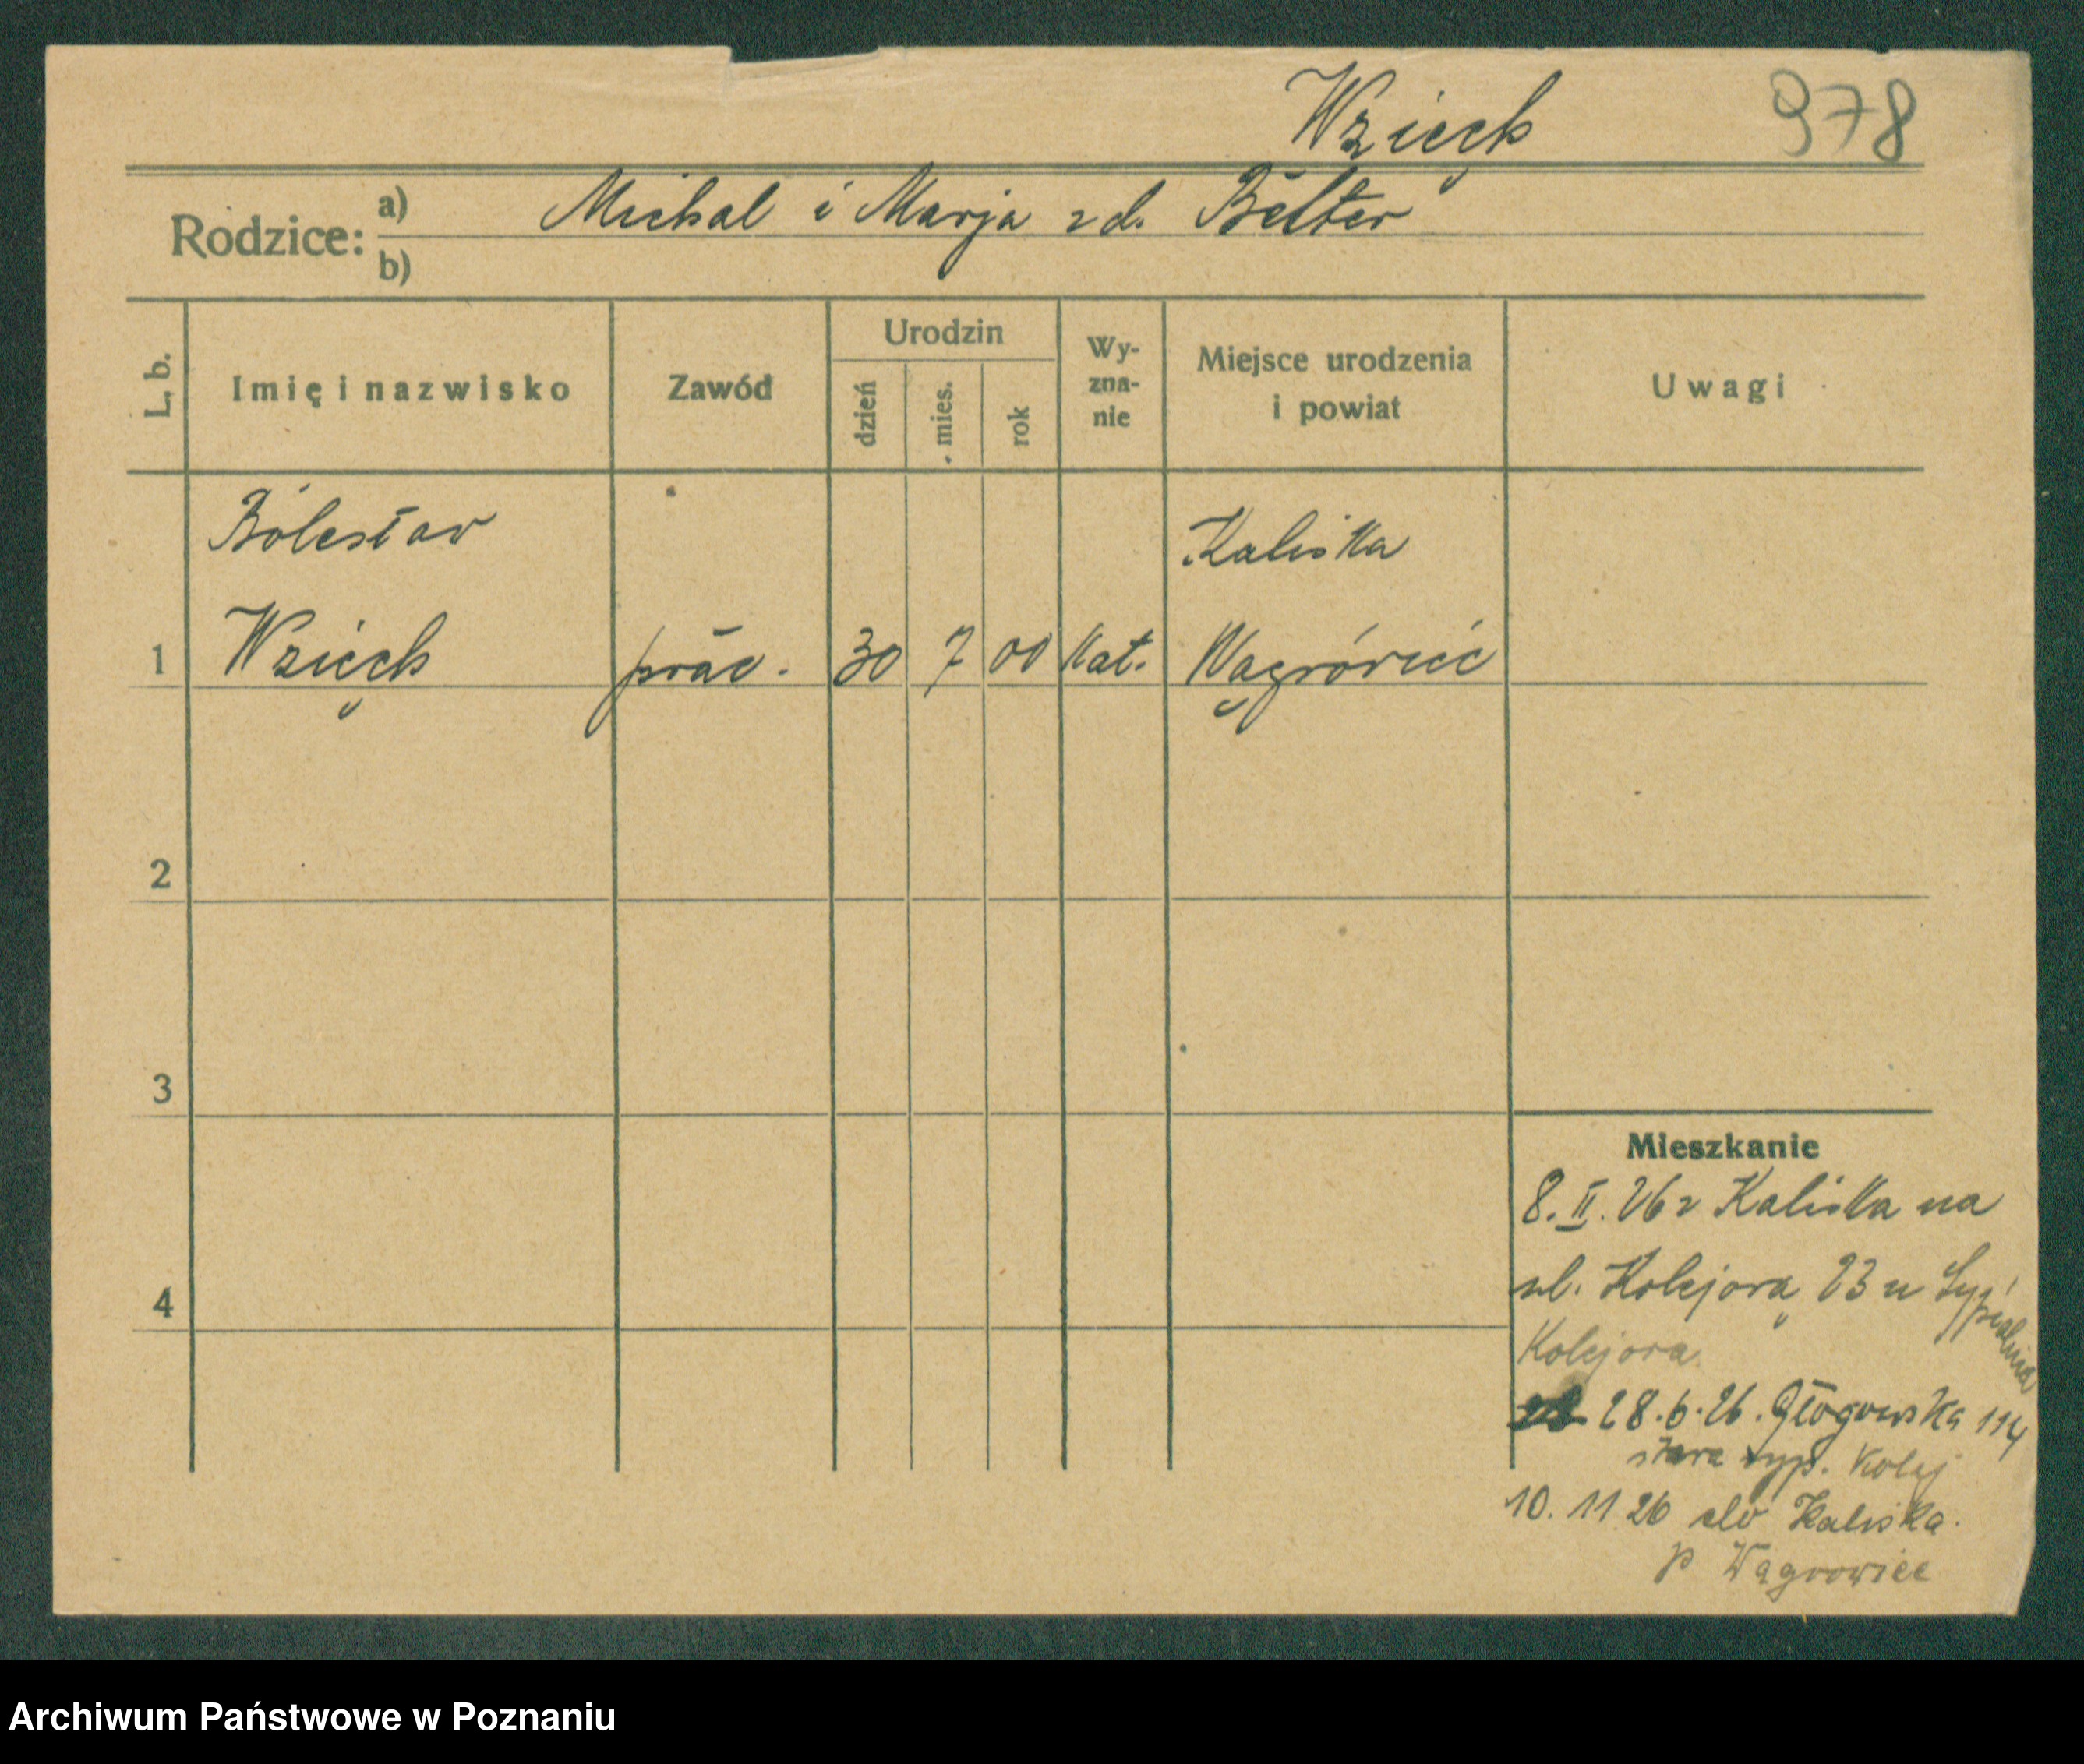 Wzięch 978
Rodzice: a) Michal i Marja zd. Belter
b)
L. b. Imię i nazwisko Zawód Urodzin dzień mies. rok Wy-zna-nie Miejsce urodzenia i powiat Uwagi
Bolesław Kaliska
1 Wzięch prac. 30 7 00 kat. Wągrówiec
2
3
4
Mieszkanie
8. II. 26 z Kaliska na
ul. Kolejorą 23 u Sypialnia
Kolejora
28.6.26. Głogowska 114
stara syp. Kolej
10. 11 26 do Kaliska.
p Wągrowiec
Archiwum Państwowe w Poznaniu